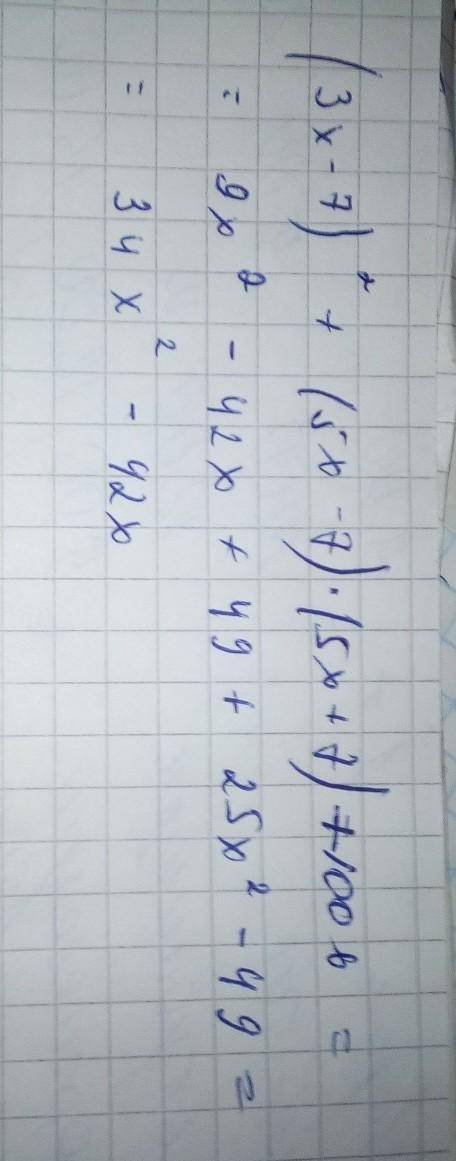 (3x-7)² + (5x-7)·(5x+7)+100x =
= 9x² - 42x + 49 + 25x² - 49 =
= 34x² - 42x